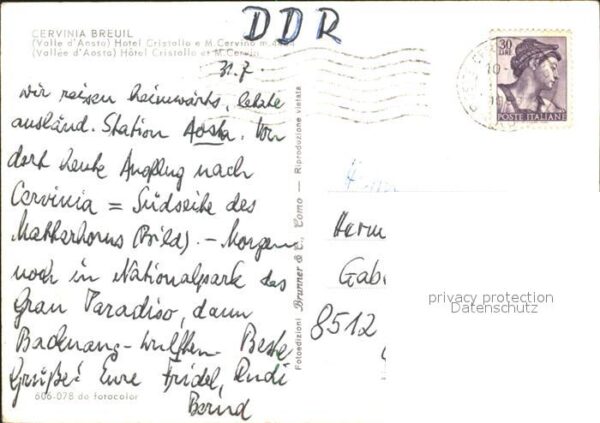 DDR
CERVINIA BREUIL
(Valle d'Aosta) Hotel Cristallo e M. Cervino m.
(Vallée d'Aosta) Hôtel Cristallo et M. Cervin
31.7.
wir reisen heimwärts, letzte
ausländ. Station Aosta. Von
dort heute Ausflug nach
Cervinia = Südseite des
Matterhorns (Bild). - Morgen
noch in Nationalpark des
Gran Paradiso, dann
Backnang - Beste
Grüße! Eure Fridel, Rudi
Bernd
606-078 da fotocolor
Fotoedizioni Brunner & C., Como — Riproduzione vietata
30
LIRE
POSTE ITALIANE
Herrn
Gab
8512
privacy protection
Datenschutz